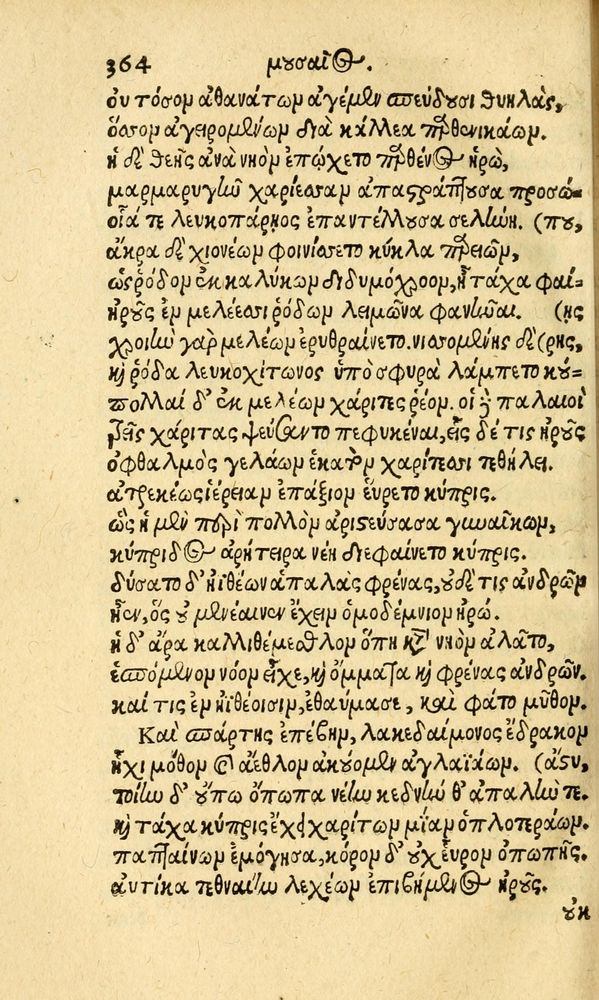 364 μουσαῖος.
οὐ τόσον ἀθανάτων ἀγέμεν σπεύδουσι θυηλὰς,
ὅσσον ἀγειρομένων διὰ κάλλεα παρθενικάων.
ἡ δὲ θεῆς ἀνὰ νηὸν ἐπώχετο παρθένος ἡρὼ,
μαρμαρυγὴν χαρίεσσαν ἀπαστράπτουσα προσώ-
οἷά τε λευκοπάρηος ἐπαντέλλουσα σελήνη. (που,
ἄκρα δὲ χιονέων φοινίσσετο κύκλα παρειῶν,
ὡς ῥόδον ἐκ καλύκων διδυμόχροον, ἦ τάχα φαί-
ἡροῦς ἐν μελέεσσι ῥόδων λειμῶνα φανῆναι. (ης
χροιὴν γὰρ μελέων ἐρυθραίνετο. νισσομένης δὲ (ρης,
καὶ ῥόδα λευκοχίτωνος ὑπὸ σφυρὰ λάμπετο κού-
πολλαὶ δ' ἐκ μελέων χάριτες ῥέον. οἱ δὲ παλαιοὶ
τρεῖς χάριτας ψεύσαντο πεφυκέναι, εἷς δέ τις ἡροῦς
ὀφθαλμὸς γελάων ἑκατὸν χαρίτεσσι τεθήλει.
ἀτρεκέως ἱέρειαν ἐπάξιον εὕρετο κύπρις.
ὣς ἡ μὲν περὶ πολλὸν ἀριστεύσασα γυναικῶν,
κύπριδος ἀρήτειρα νέη διεφαίνετο κύπρις.
δύσατο δ' ἠϊθέων ἁπαλὰς φρένας, οὐδέ τις ἀνδρῶν
ἦεν, ὃς οὐ μενέαινεν ἔχειν ὁμοδέμνιον ἡρώ.
ἡ δ' ἄρα καλλιθέμεθλον ὅπη κατὰ νηὸν ἀλᾶτο,
ἑσπόμενον νόον εἶχε, καὶ ὄμματα καὶ φρένας ἀνδρῶν.
καί τις ἐν ἠϊθέοισιν, ἐθαύμασε, καὶ φάτο μῦθον.
Καὶ σπάρτης ἐπέβην, λακεδαίμονος ἔδρακον
ἧχι μόθον καὶ ἄεθλον ἀκούομεν ἀγλαϊάων. (ἄστυ,
τοίην δ' οὔπω ὄπωπα νέην κεδνήν θ' ἁπαλήν τε.
καὶ τάχα κύπρις ἔχει χαρίτων μίαν ὁπλοτεράων.
παπταίνων ἐμόγησα, κόρον δ' οὐχ εὗρον ὀπωπῆς.
αὐτίκα τεθναίην λεχέων ἐπιβήμενος ἡροῦς.
οὐκ